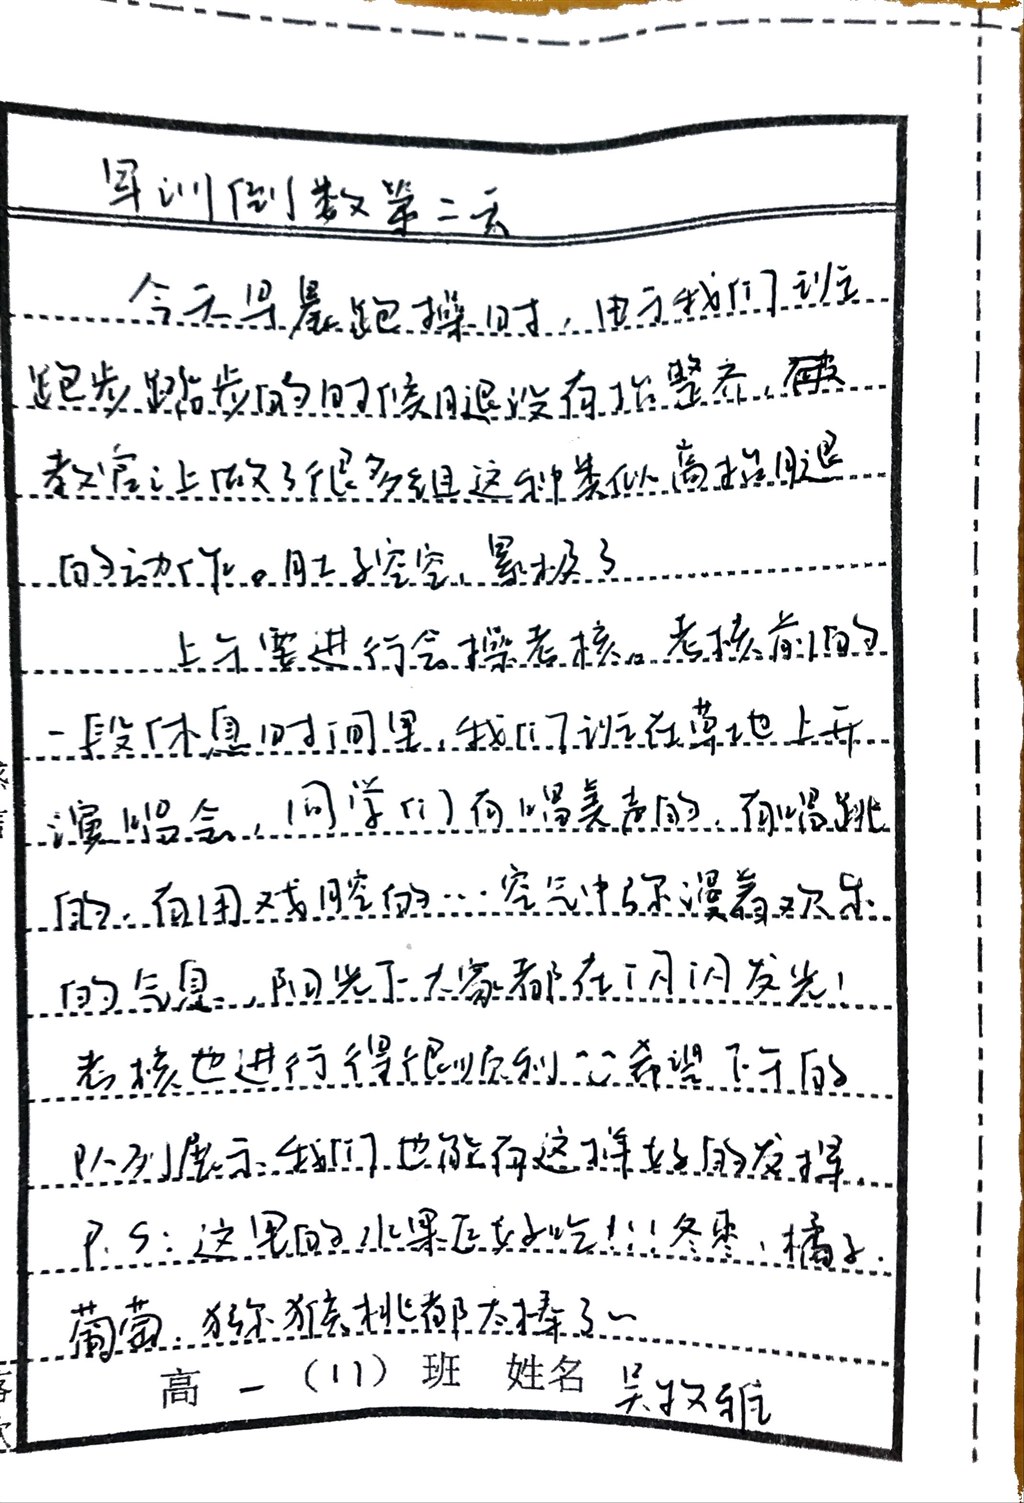 军训倒数第二天
今天早晨跑操时，由于我们班
跑步踏步的时候腿没有抬整齐，被
教官让做了很多组这种类似高抬腿
的动作。肚子空空，累极了
上午要进行会操考核。考核前的
一段休息时间里，我们班在草地上开
演唱会，同学们有唱美声的，有唱跳
的，有用戏腔的…空气中弥漫着欢乐
的气息，阳光下大家都在闪闪发光！
考核也进行得很顺利^^希望下午的
队列展示，我们也能有这样好的发挥.
P.S：这里的水果巨好吃！！！冬枣，橘子.
葡萄，猕猴桃都太棒了~
高一（11）班 姓名 吴牧雅